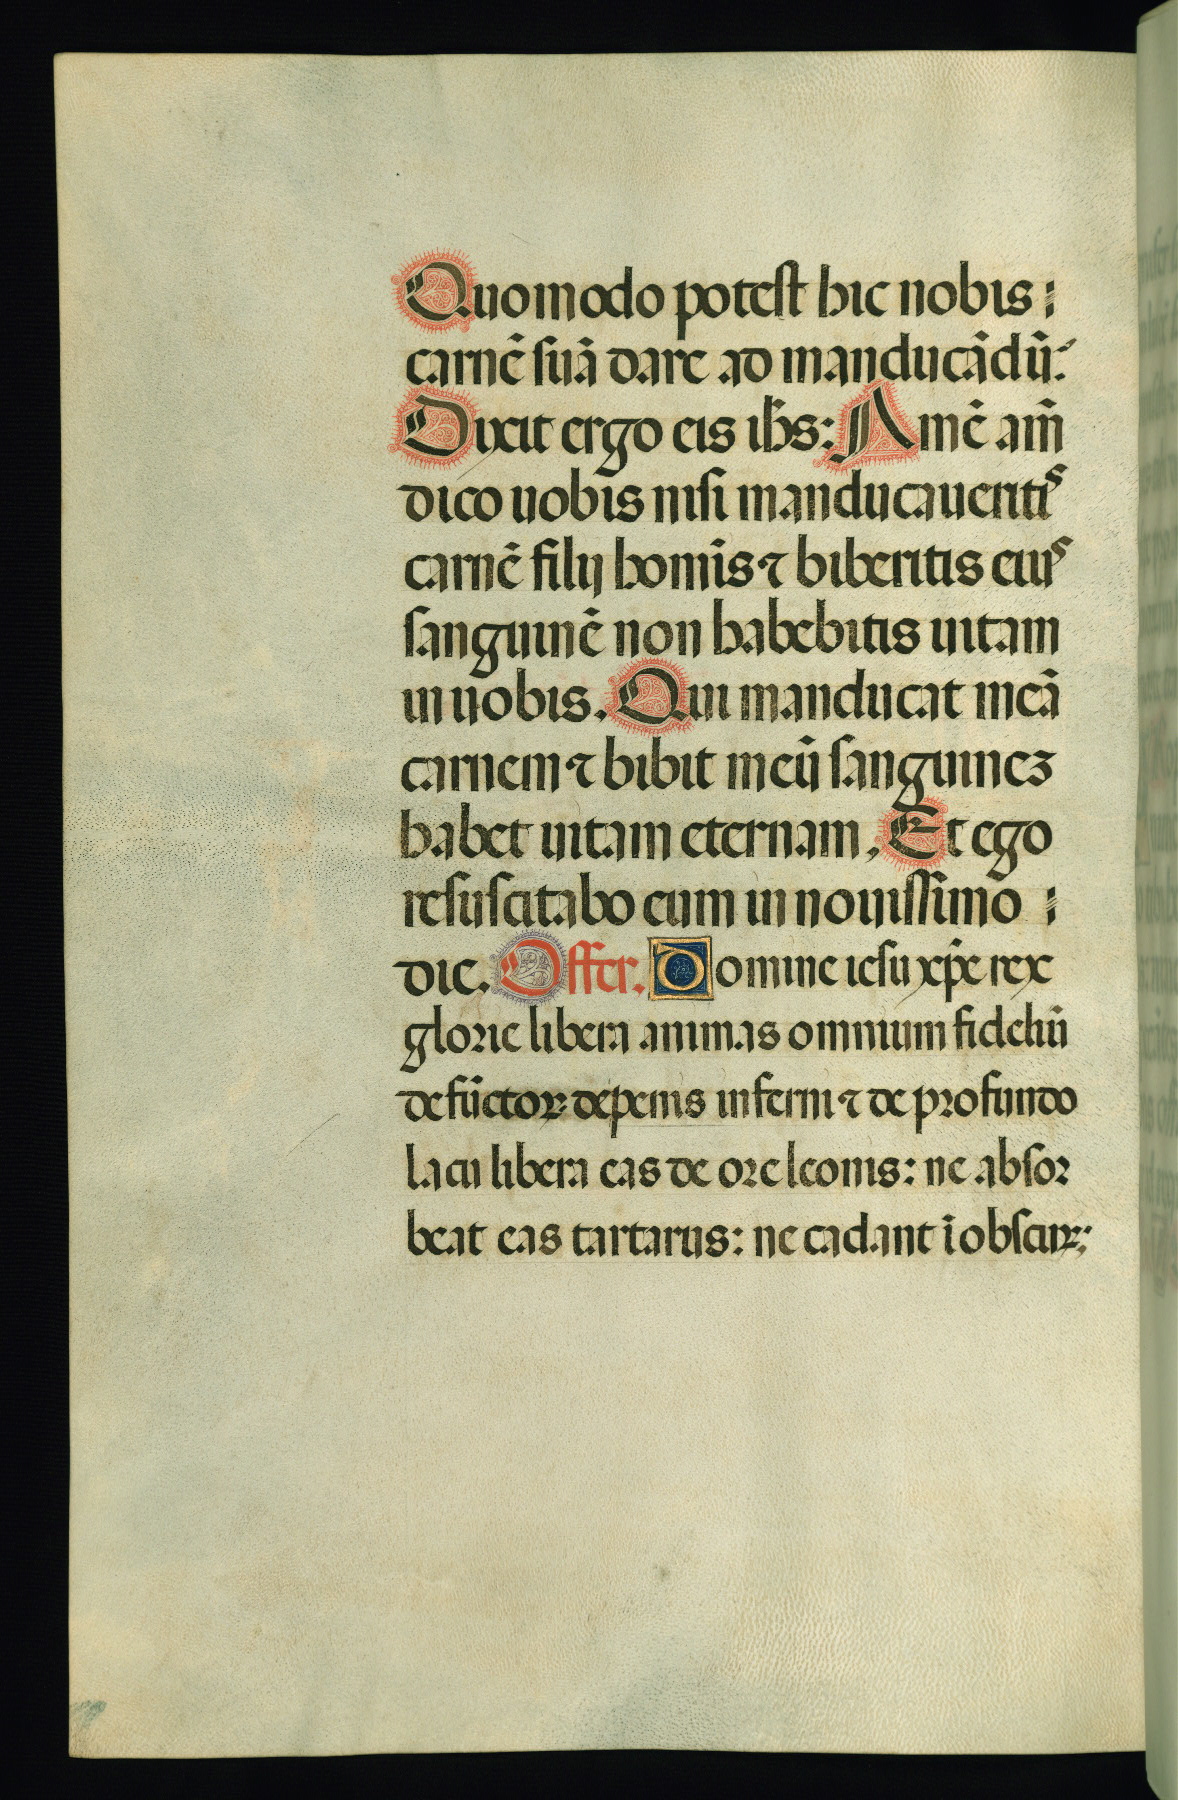 Quomodo potest hic nobis
carnē suā dare ad manducādū:
Dixit ergo eis ihs: Amē amē
dico uobis nisi manducaueritis
carnē filij homīs ⁊ biberitis eius
sanguinē non habebitis uitam
in uobis. Qui manducat meā
carnem ⁊ bibit meū sanguinez
habet uitam eternam, Et ego
resuscitabo eum in nouissimo
die. Offer. Domine iesu xp̄e rex
glorie libera animas omnium fideliū
defūctoꝝ de penis inferni ⁊ de profundo
lacu libera eas de ore leonis: ne absor
beat eas tartarus: ne cadant ī obscuꝝ: